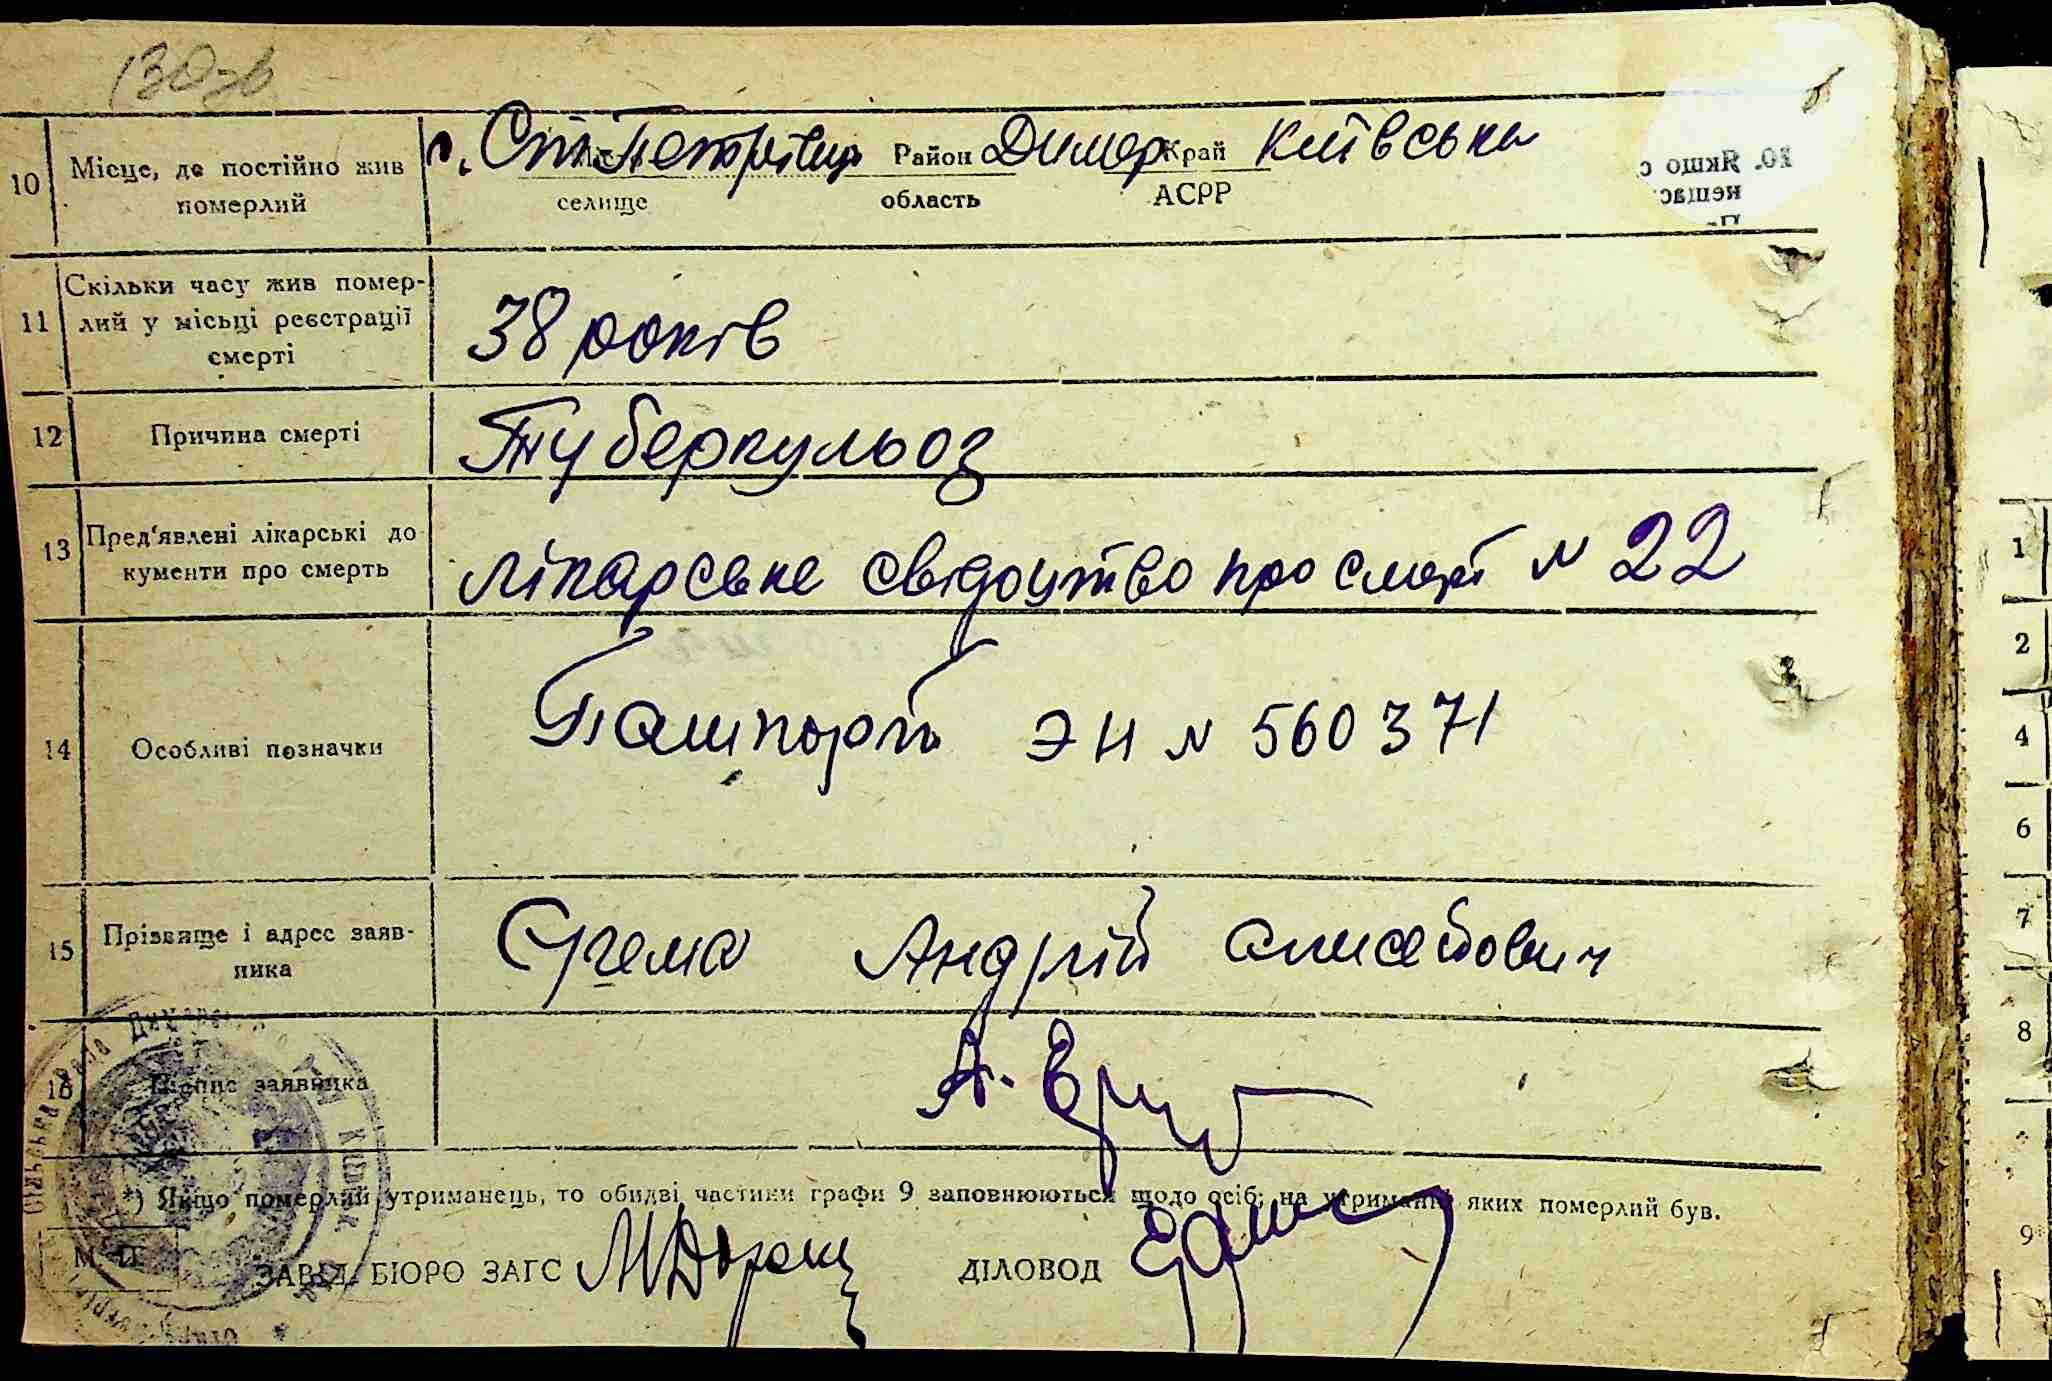 130зв
10 Місце, де постійно жив померлий
с. Ст-Петрівці Район Димер Край Київська
селище область АСРР
11 Скільки часу жив помер-
лий у місці реєстрації
смерті
38 років
12 Причина смерті
Туберкульоз
13 Пред'явлені лікарські до
кументи про смерть
лікарське свідоцтво про смерт № 22
14 Особливі позначки
Пашпорт ЭН № 560371
15 Прізвище і адрес заяв-
ника
Андрій
16 Підпис заявника
А.
*) Якщо померлий утриманець, то обидві частини графи 9 заповнюються щодо осіб, на утриманні яких померлий був.
М. П.
ЗАВІД. БЮРО ЗАГС ДІЛОВОД
1
2
4
6
7
8
9